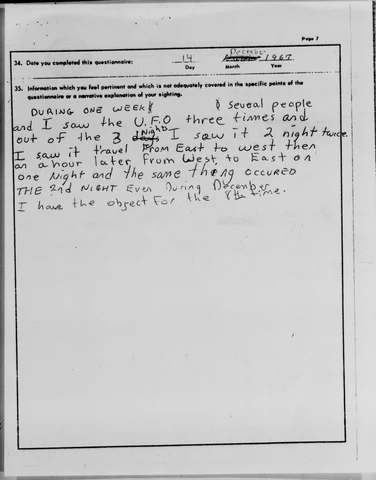 Page 7
34. Date you completed this questionnaire: 14 December 1967
Day Month Year
35. Information which you feel pertinent and which is not adequately covered in the specific points of the
questionnaire or a narrative explanation of your sighting.
DURING ONE WEEK several people
and I saw the U.F.O three times and
out of the 3 Nights I saw it 2 night twice.
I saw it travel From East to west then
an a hour later From West to East on
one Night and the same thong occured
THE 2nd NIGHT Even During December
I have the object For the 8th time.